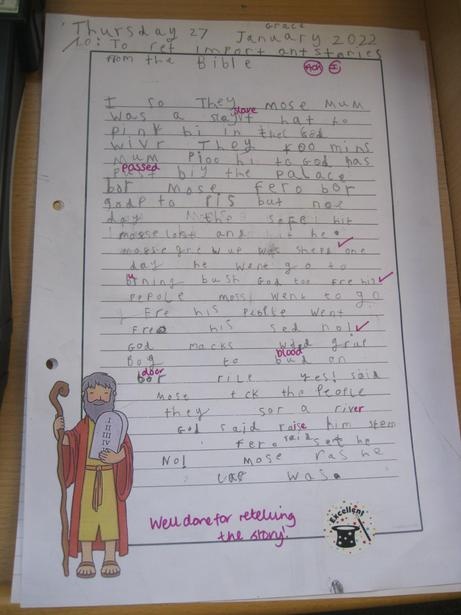 Grace
Thursday 27 January 2022
To: To ret import antstories
from the Bible
I so They slave mose Mum
was a hat to
Pink hi in the God
wivr They too mins
Mum Ploo hi to God has
passed
biy the palace
bor Mose fero bor
to ris but noe
day the sefe hit
and hit he
mosse grew up was sheps one
day he went go to
burning bush God too Fre his
pepole moss went to go
Fre his People went
Freo his sed no!
God macks wded grue
blood
Bog to bud on
door
bor rile yes! said
Mose tck tho People
they sor a river
God said raise him stem
fero said sed he
No! Mose ras he
was.
I
II
III
IV
Well done for retelling
the story!
Excellent